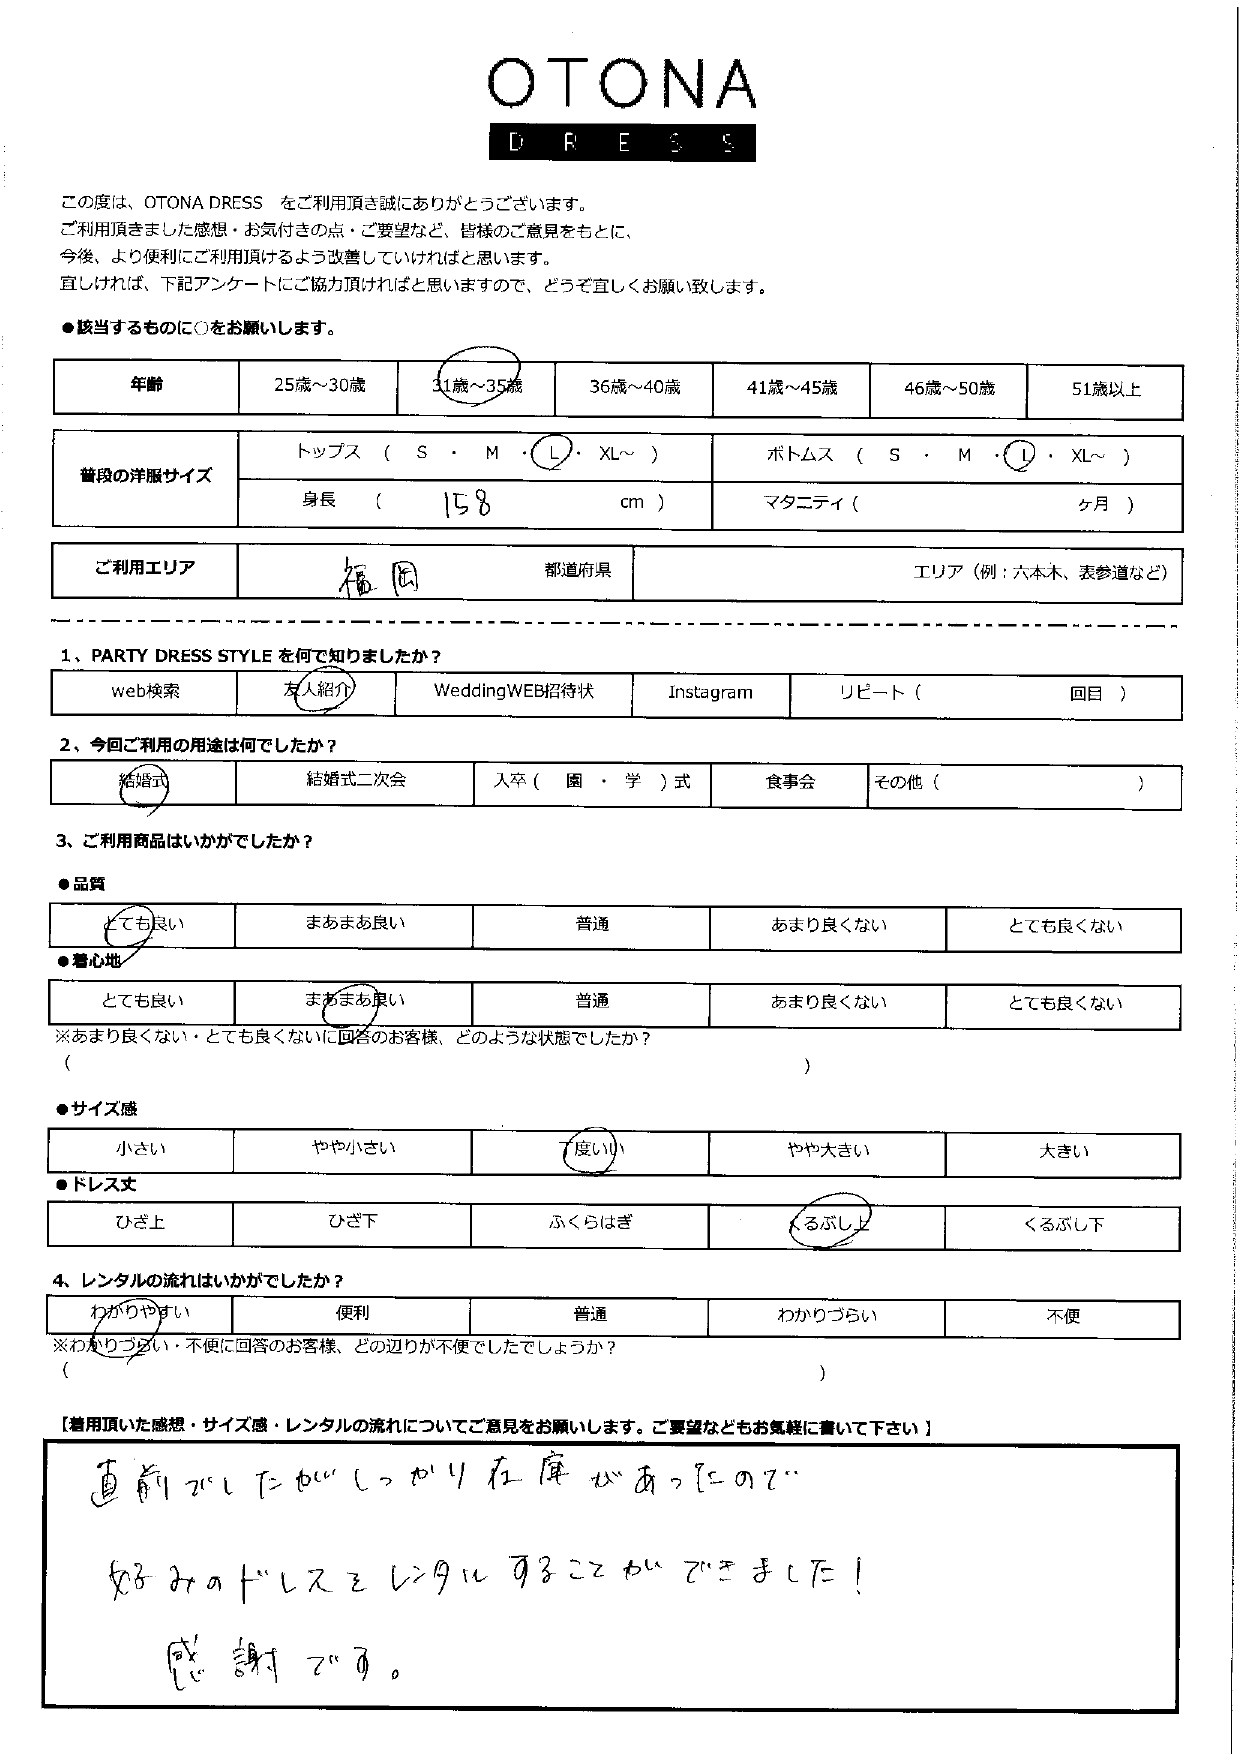 OTONA
DRESS
この度は、OTONA DRESS　をご利用頂き誠にありがとうございます。
ご利用頂きました感想・お気付きの点・ご要望など、皆様のご意見をもとに、
今後、より便利にご利用頂けるよう改善していければと思います。
宜しければ、下記アンケートにご協力頂ければと思いますので、どうぞ宜しくお願い致します。
●該当するものに○をお願いします。
年齢 25歳～30歳 31歳～35歳 36歳～40歳 41歳～45歳 46歳～50歳 51歳以上
普段の洋服サイズ トップス （ S ・ M ・ L ・ XL～ ） ボトムス （ S ・ M ・ L ・ XL～ ）
身長 （ 158 cm ） マタニティ（ ヶ月 ）
ご利用エリア 福岡 都道府県 エリア（例：六本木、表参道など）
1、PARTY DRESS STYLE を何で知りましたか？
web検索 友人紹介 WeddingWEB招待状 Instagram リピート（ 回目 ）
2、今回ご利用の用途は何でしたか？
結婚式 結婚式二次会 入卒（ 園 ・ 学 ）式 食事会 その他（ ）
3、ご利用商品はいかがでしたか？
●品質
とても良い まあまあ良い 普通 あまり良くない とても良くない
●着心地
とても良い まあまあ良い 普通 あまり良くない とても良くない
※あまり良くない・とても良くないに回答のお客様、どのような状態でしたか？
（ ）
●サイズ感
小さい やや小さい 丁度いい やや大きい 大きい
●ドレス丈
ひざ上 ひざ下 ふくらはぎ くるぶし上 くるぶし下
4、レンタルの流れはいかがでしたか？
わかりやすい 便利 普通 わかりづらい 不便
※わかりづらい・不便に回答のお客様、どの辺りが不便でしたでしょうか？
（ ）
【着用頂いた感想・サイズ感・レンタルの流れについてご意見をお願いします。ご要望などもお気軽に書いて下さい 】
直前でしたがしっかり在庫があったので
好みのドレスをレンタルすることができました！
感謝です。